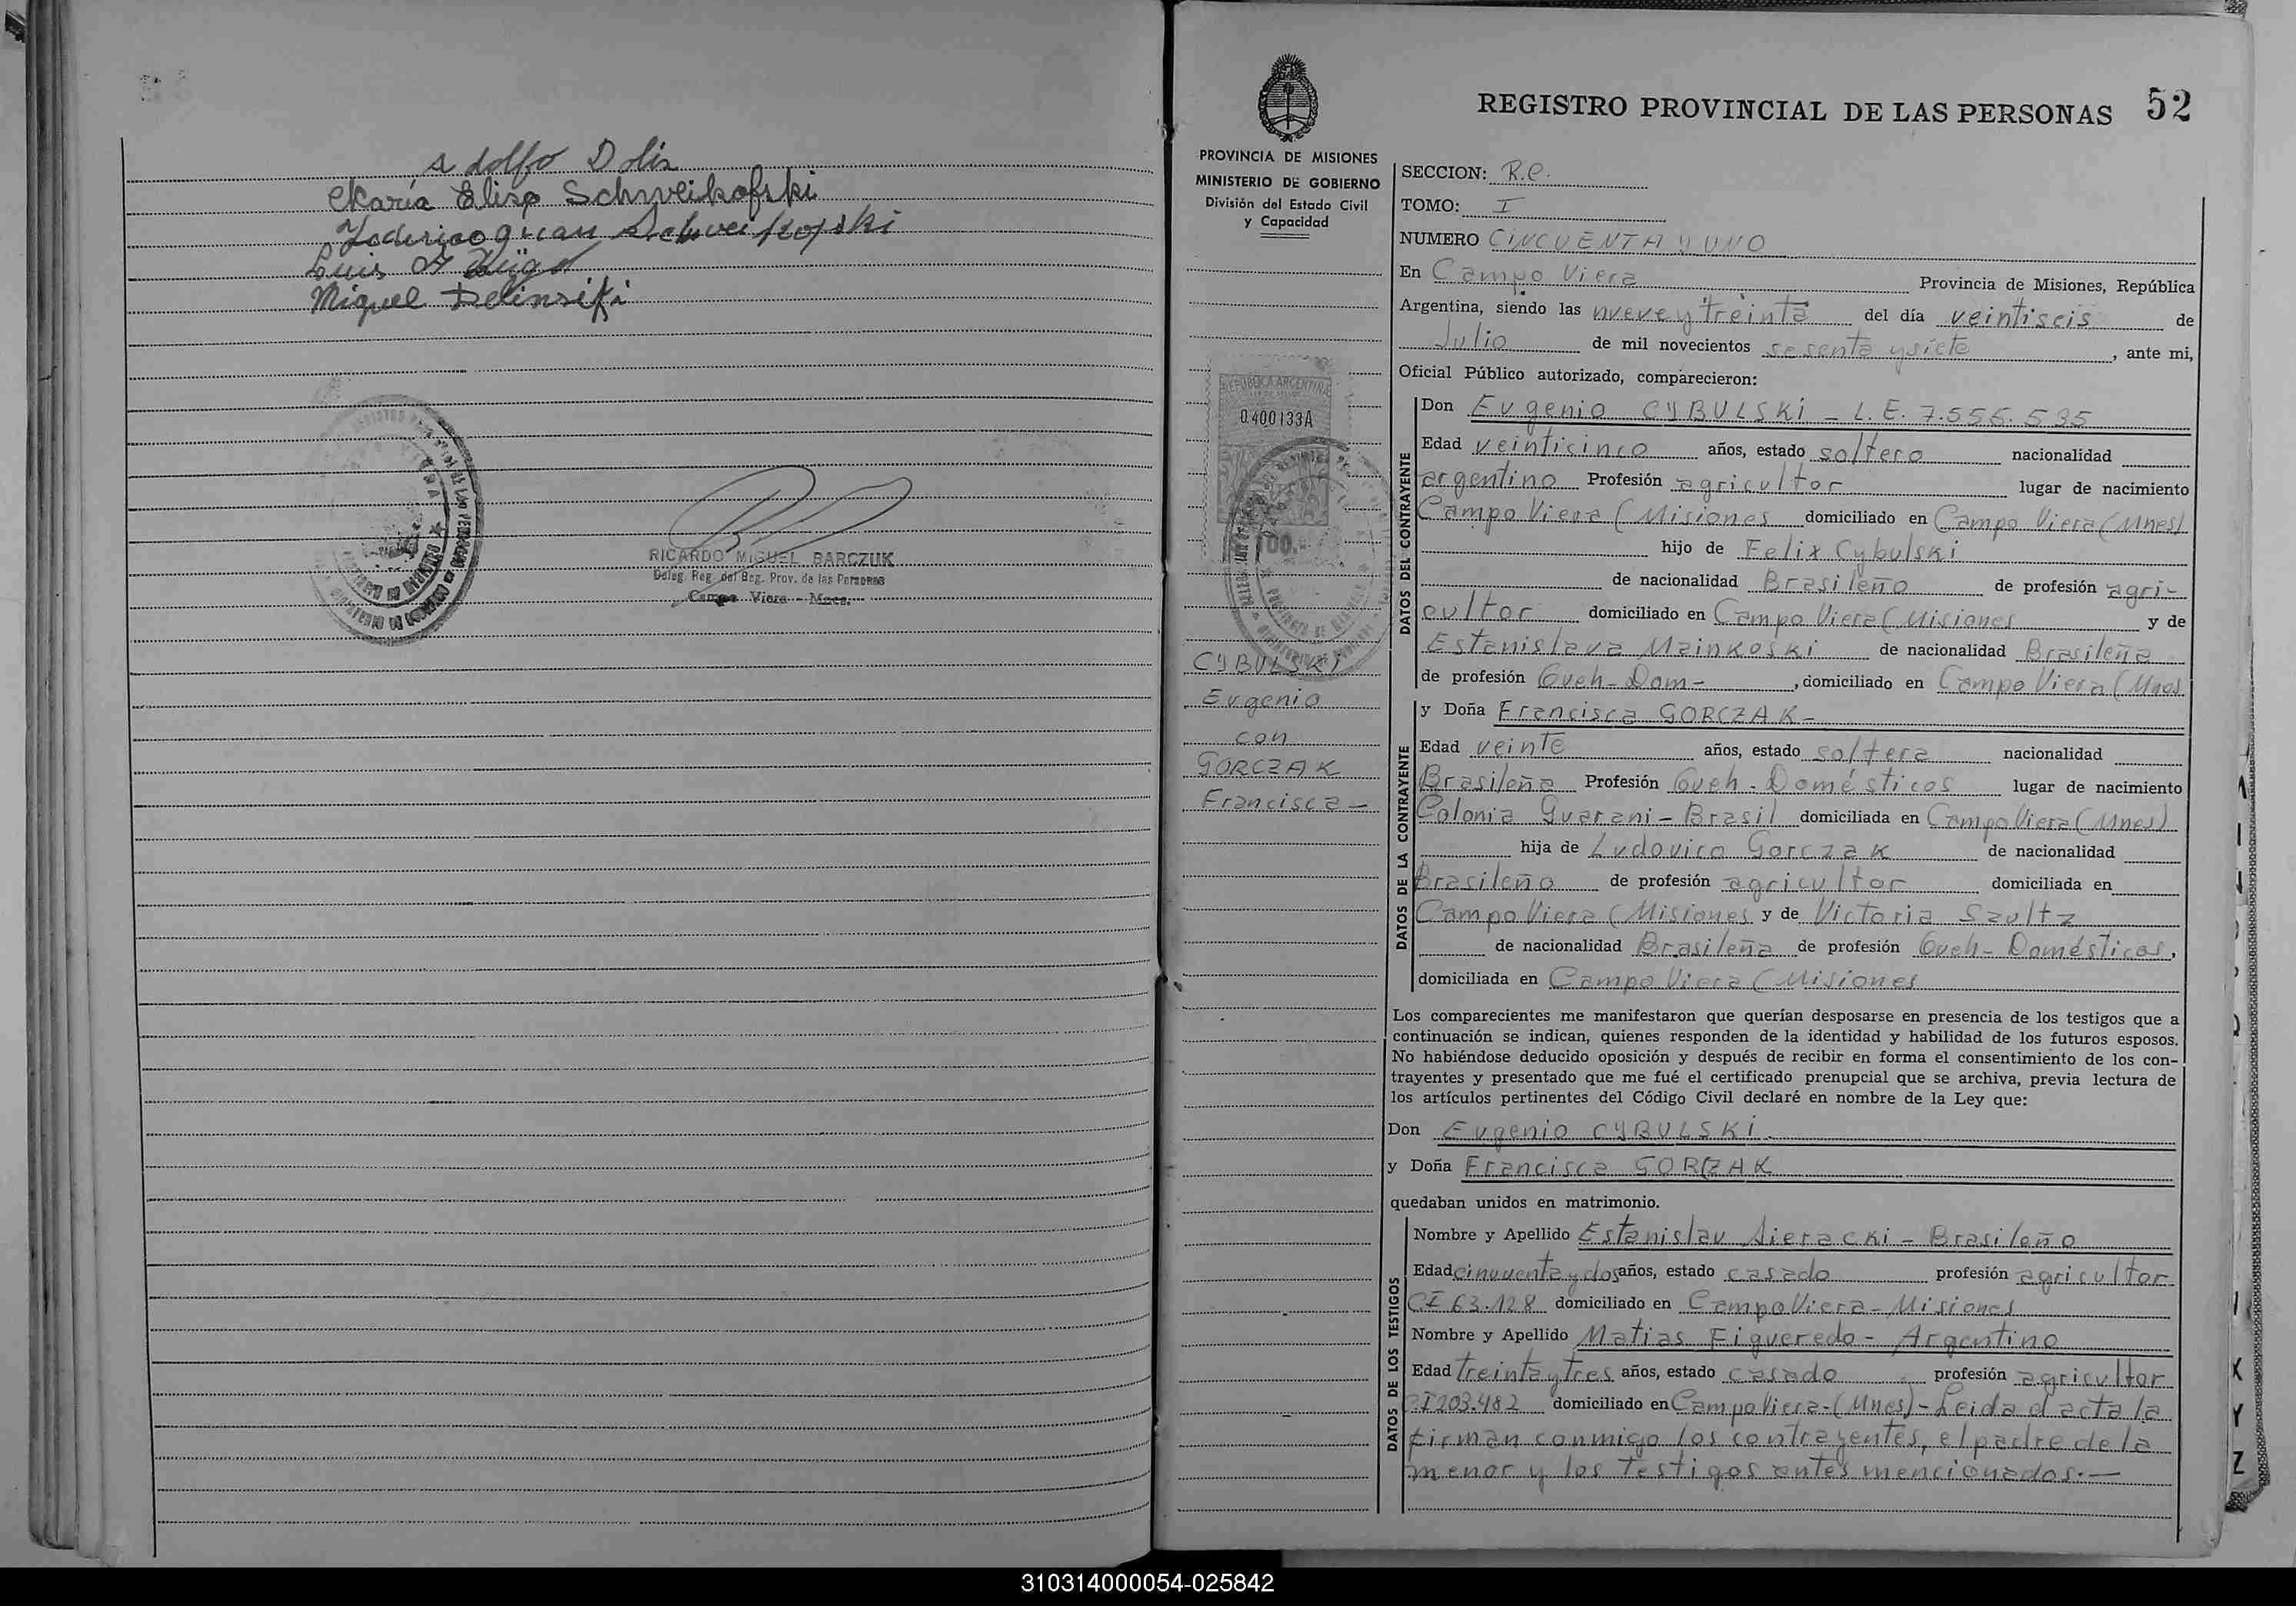 Adolfo Dolis
María Elisa Schweikofski
Federico Juan Schweikofski
Luis
Miguel
RICARDO MIGUEL BARCZUK
Deleg. Reg. del Reg. Prov. de las Personas
Campo Viera - Mnes.
REGISTRO PROVINCIAL DE LAS PERSONAS 52
PROVINCIA DE MISIONES
MINISTERIO DE GOBIERNO
División del Estado Civil
y Capacidad
REPUBLICA ARGENTINA
0.400133A
CYBULSKI
Eugenio
con
GORCZAK
Francisca -
SECCION: R.C.
TOMO: I
NUMERO CINCUENTA y UNO
En Campo Viera Provincia de Misiones, República
Argentina, siendo las nueve y treinta del día veintiseis de
Julio de mil novecientos sesenta y siete, ante mi,
Oficial Público autorizado, comparecieron:
DATOS DEL CONTRAYENTE
Don Eugenio CYBULSKI - L.E. 7.556.535
Edad veinticinco años, estado soltero nacionalidad
argentino Profesión agricultor lugar de nacimiento
Campo Viera (Misiones domiciliado en Campo Viera (Mnes)
hijo de Felix Cybulski
de nacionalidad Brasileño de profesión agri-
cultor domiciliado en Campo Viera (Misiones y de
Estanislava Mainkoski de nacionalidad Brasileña
de profesión Queh-Dom-, domiciliado en Campo Viera (Mnes)
DATOS DE LA CONTRAYENTE
y Doña Francisca GORCZAK-
Edad veinte años, estado soltera nacionalidad
Brasileña Profesión Queh-Domésticos lugar de nacimiento
Colonia Guarani - Brasil domiciliada en Campo Viera (Mnes)
hija de Ludovico Gorczak de nacionalidad
Brasileño de profesión agricultor domiciliada en
Campo Viera (Misiones y de Victoria Szultz
de nacionalidad Brasileña de profesión Queh-Domésticos,
domiciliada en Campo Viera (Misiones
Los comparecientes me manifestaron que querían desposarse en presencia de los testigos que a
continuación se indican, quienes responden de la identidad y habilidad de los futuros esposos.
No habiéndose deducido oposición y después de recibir en forma el consentimiento de los con-
trayentes y presentado que me fué el certificado prenupcial que se archiva, previa lectura de
los artículos pertinentes del Código Civil declaré en nombre de la Ley que:
Don Eugenio CYBULSKI
y Doña Francisca GORCZAK
quedaban unidos en matrimonio.
DATOS DE LOS TESTIGOS
Nombre y Apellido Estanislau Sieracki - Brasileño
Edad cincuenta y dos años, estado casado profesión agricultor
CI 63.128 domiciliado en Campo Viera - Misiones
Nombre y Apellido Matias Figueredo - Argentino
Edad treinta y tres años, estado casado profesión agricultor
CI 203.482 domiciliado en Campo Viera - (Mnes) - Leida el acta la
firman conmigo los contrayentes, el padre de la
menor y los testigos antes mencionados.-
310314000054-025842